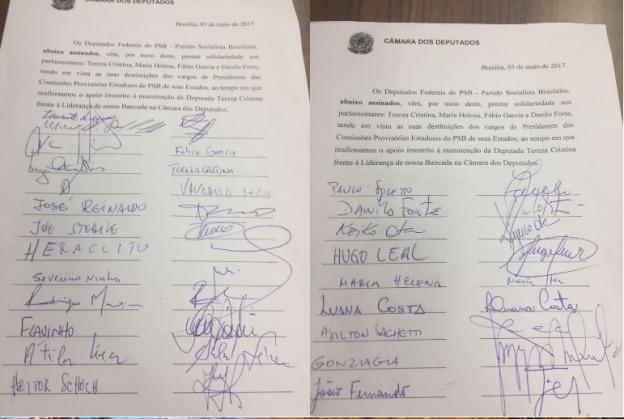 CÂMARA DOS DEPUTADOS
Brasília, 03 de maio de 2017.
Os Deputados Federais do PSB - Partido Socialista Brasileiro,
abaixo assinados, vêm, por meio deste, prestar solidariedade aos
parlamentares: Tereza Cristina, Maria Helena, Fábio Garcia e Danilo Forte,
tendo em vista as suas destituições dos cargos de Presidentes das
Comissões Provisórias Estaduais do PSB de seus Estados, ao tempo em que
reafirmamos o apoio irrestrito à manutenção da Deputada Tereza Cristina
frente à Liderança de nossa Bancada na Câmara dos Deputados.
Fabio Garcia
TEREZA CRISTINA
JOSÉ REINALDO
HERACLITO
SEVERINO NINHO
FLAVINHO
HEITOR SCHUCH
CÂMARA DOS DEPUTADOS
Brasília, 03 de maio de 2017.
Os Deputados Federais do PSB - Partido Socialista Brasileiro,
abaixo assinados, vêm, por meio deste, prestar solidariedade aos
parlamentares: Tereza Cristina, Maria Helena, Fábio Garcia e Danilo Forte,
tendo em vista as suas destituições dos cargos de Presidentes das
Comissões Provisórias Estaduais do PSB de seus Estados, ao tempo em que
reafirmamos o apoio irrestrito à manutenção da Deputada Tereza Cristina
frente à Liderança de nossa Bancada na Câmara dos Deputados.
DANILO FORTE
KEIKO OTA
HUGO LEAL
MARIA HELENA
LUANA COSTA
ADILTON SACHETTI
GONZAGA
João Fernando